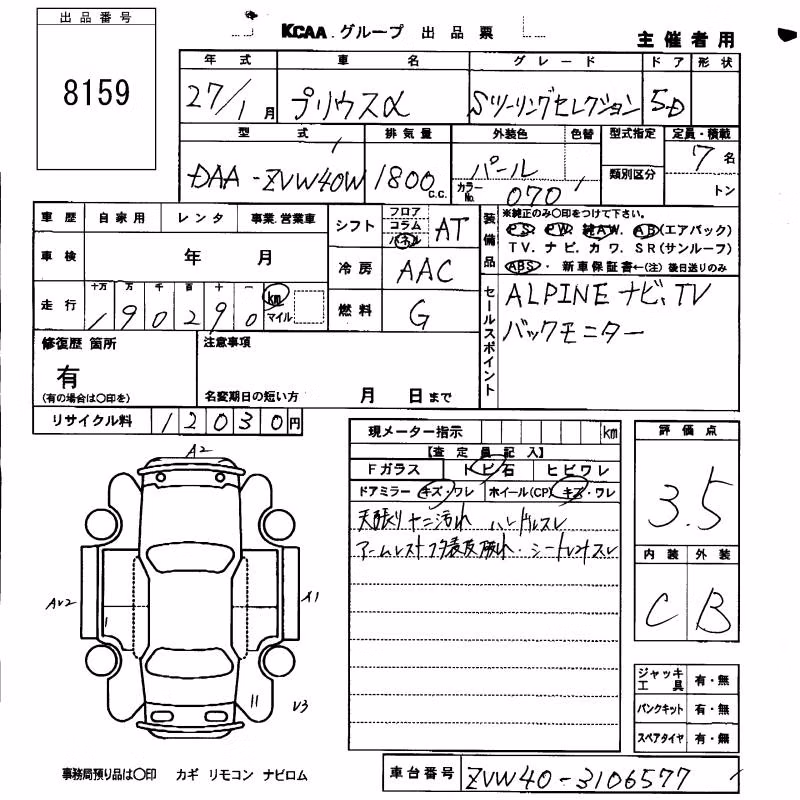 出品番号
8159
KCAA.グループ 出品票
主催者用
年式 車名 グレード ドア 形状
27/1月 プリウスα Sツーリングセレクション 5D
型式 排気量 外装色 色替 型式指定 定員・積載
DAA-ZVW40W 1800c.c. パール 7名
カラーNo. 070 類別区分 トン
車歴 自家用 レンタ 事業.営業車
シフト フロア コラム パネル AT
装備品 ※純正のみ〇印をつけて下さい。
PS PW 純AW. AB(エアバック)
TV. ナビ. カワ. SR(サンルーフ)
ABS. 新車保証書←(注)後日送りのみ
車検 年 月
冷房 AAC
走行 十万 万 千 百 十 一 km マイル
190290
燃料 G
セールスポイント
ALPINE ナビ、TV
バックモニター
修復歴 箇所
有
(有の場合は〇印を)
注意事項
名変期日の短い方 月 日まで
リサイクル料 12030円
現メーター指示 km
【査定員記入】
Fガラス トビ石 ヒビワレ
ドアミラー キズ・ワレ ホイール(CP) キズ・ワレ
天張りヤニ汚れ ハンドルスレ
アームレストフタ表皮破れ・シート
評価点
3.5
内装 外装
C B
A2
AV2
A1
V3
ジャッキ工具 有・無
パンクキット 有・無
スペアタイヤ 有・無
事務局預り品は〇印 カギ リモコン ナビロム
車台番号 ZVW40-3106577